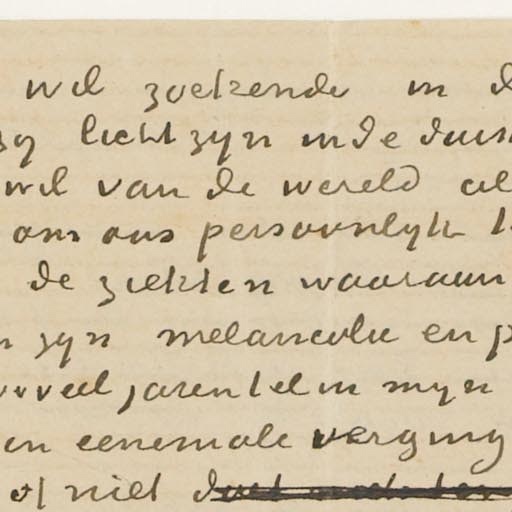 wil zoekende in d
zy licht zyn in de duis
wil van de wereld al
om ons persoonlyk
de ziekten waaraan
zyn melancolie en p
veel jaren tel in myn
en eenemale verging
of niet